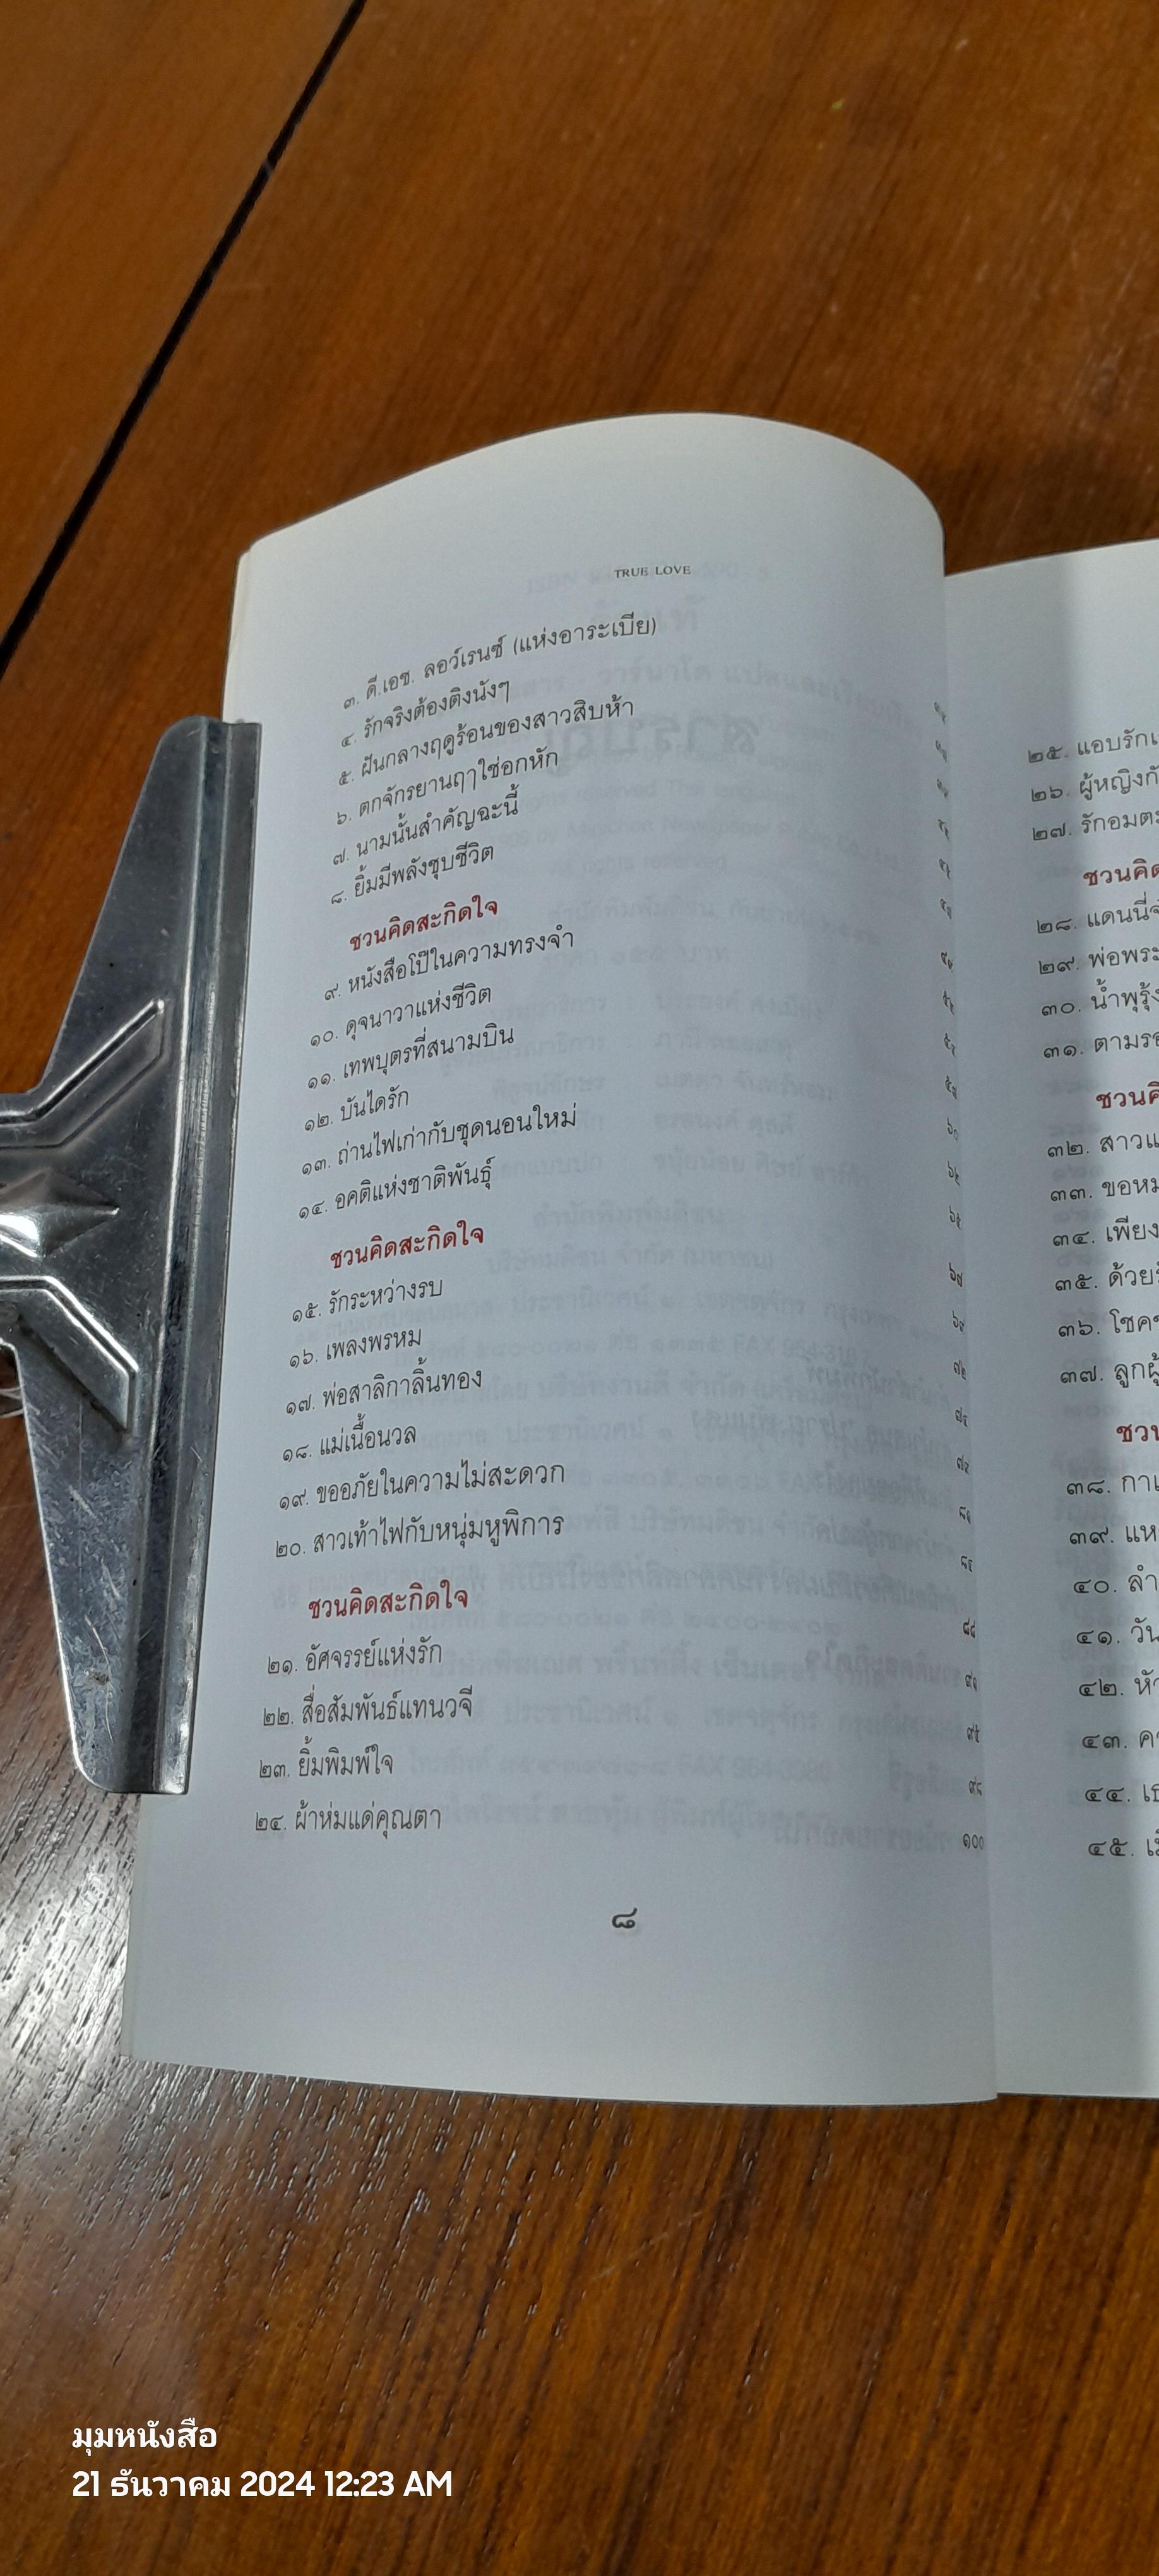 TRUE LOVE
๓. ดี.เอช. ลอว์เรนซ์ (แห่งอาระเบีย)
๔. รักจริงต้องติงนังๆ
๕. ฝันกลางฤดูร้อนของสาวสิบห้า
๖. ตกจักรยานฤๅใช่อกหัก
๗. นามนั้นสำคัญฉะนี้
๘. ยิ้มมีพลังชุบชีวิต
ชวนคิดสะกิดใจ
๙. หนังสือโป๊ในความทรงจำ
๑๐. ดุจนาวาแห่งชีวิต
๑๑. เทพบุตรที่สนามบิน
๑๒. บันไดรัก
๑๓. ถ่านไฟเก่ากับชุดนอนใหม่
๑๔. อคติแห่งชาติพันธุ์
ชวนคิดสะกิดใจ
๑๕. รักระหว่างรบ
๑๖. เพลงพรหม
๑๗. พ่อสาลิกาลิ้นทอง
๑๘. แม่เนื้อนวล
๑๙. ขออภัยในความไม่สะดวก
๒๐. สาวเท้าไฟกับหนุ่มหูพิการ
ชวนคิดสะกิดใจ
๒๑. อัศจรรย์แห่งรัก
๒๒. สื่อสัมพันธ์แทนวจี
๒๓. ยิ้มพิมพ์ใจ
๒๔. ผ้าห่มแด่คุณตา ๑๐๐
๘
๒๕. แอบรัก
๒๖. ผู้หญิง
๒๗. รักอมตะ
ชวนคิด
๒๘. แดนนี่
๒๙. พ่อพระ
๓๐. น้ำพุรุ้ง
๓๑. ตามรอ
ชวนคิ
๓๒. สาวแ
๓๓. ขอหม
๓๔. เพียง
๓๕. ด้วย
๓๖. โชค
๓๗. ลูกผู้
ชวน
๓๘. กา
๓๙. แห
๔๐. ลำ
๔๑. วัน
๔๒. หัว
๔๓. ค
๔๔. เ
๔๕. เ
มุมหนังสือ
21 ธันวาคม 2024 12:23 AM